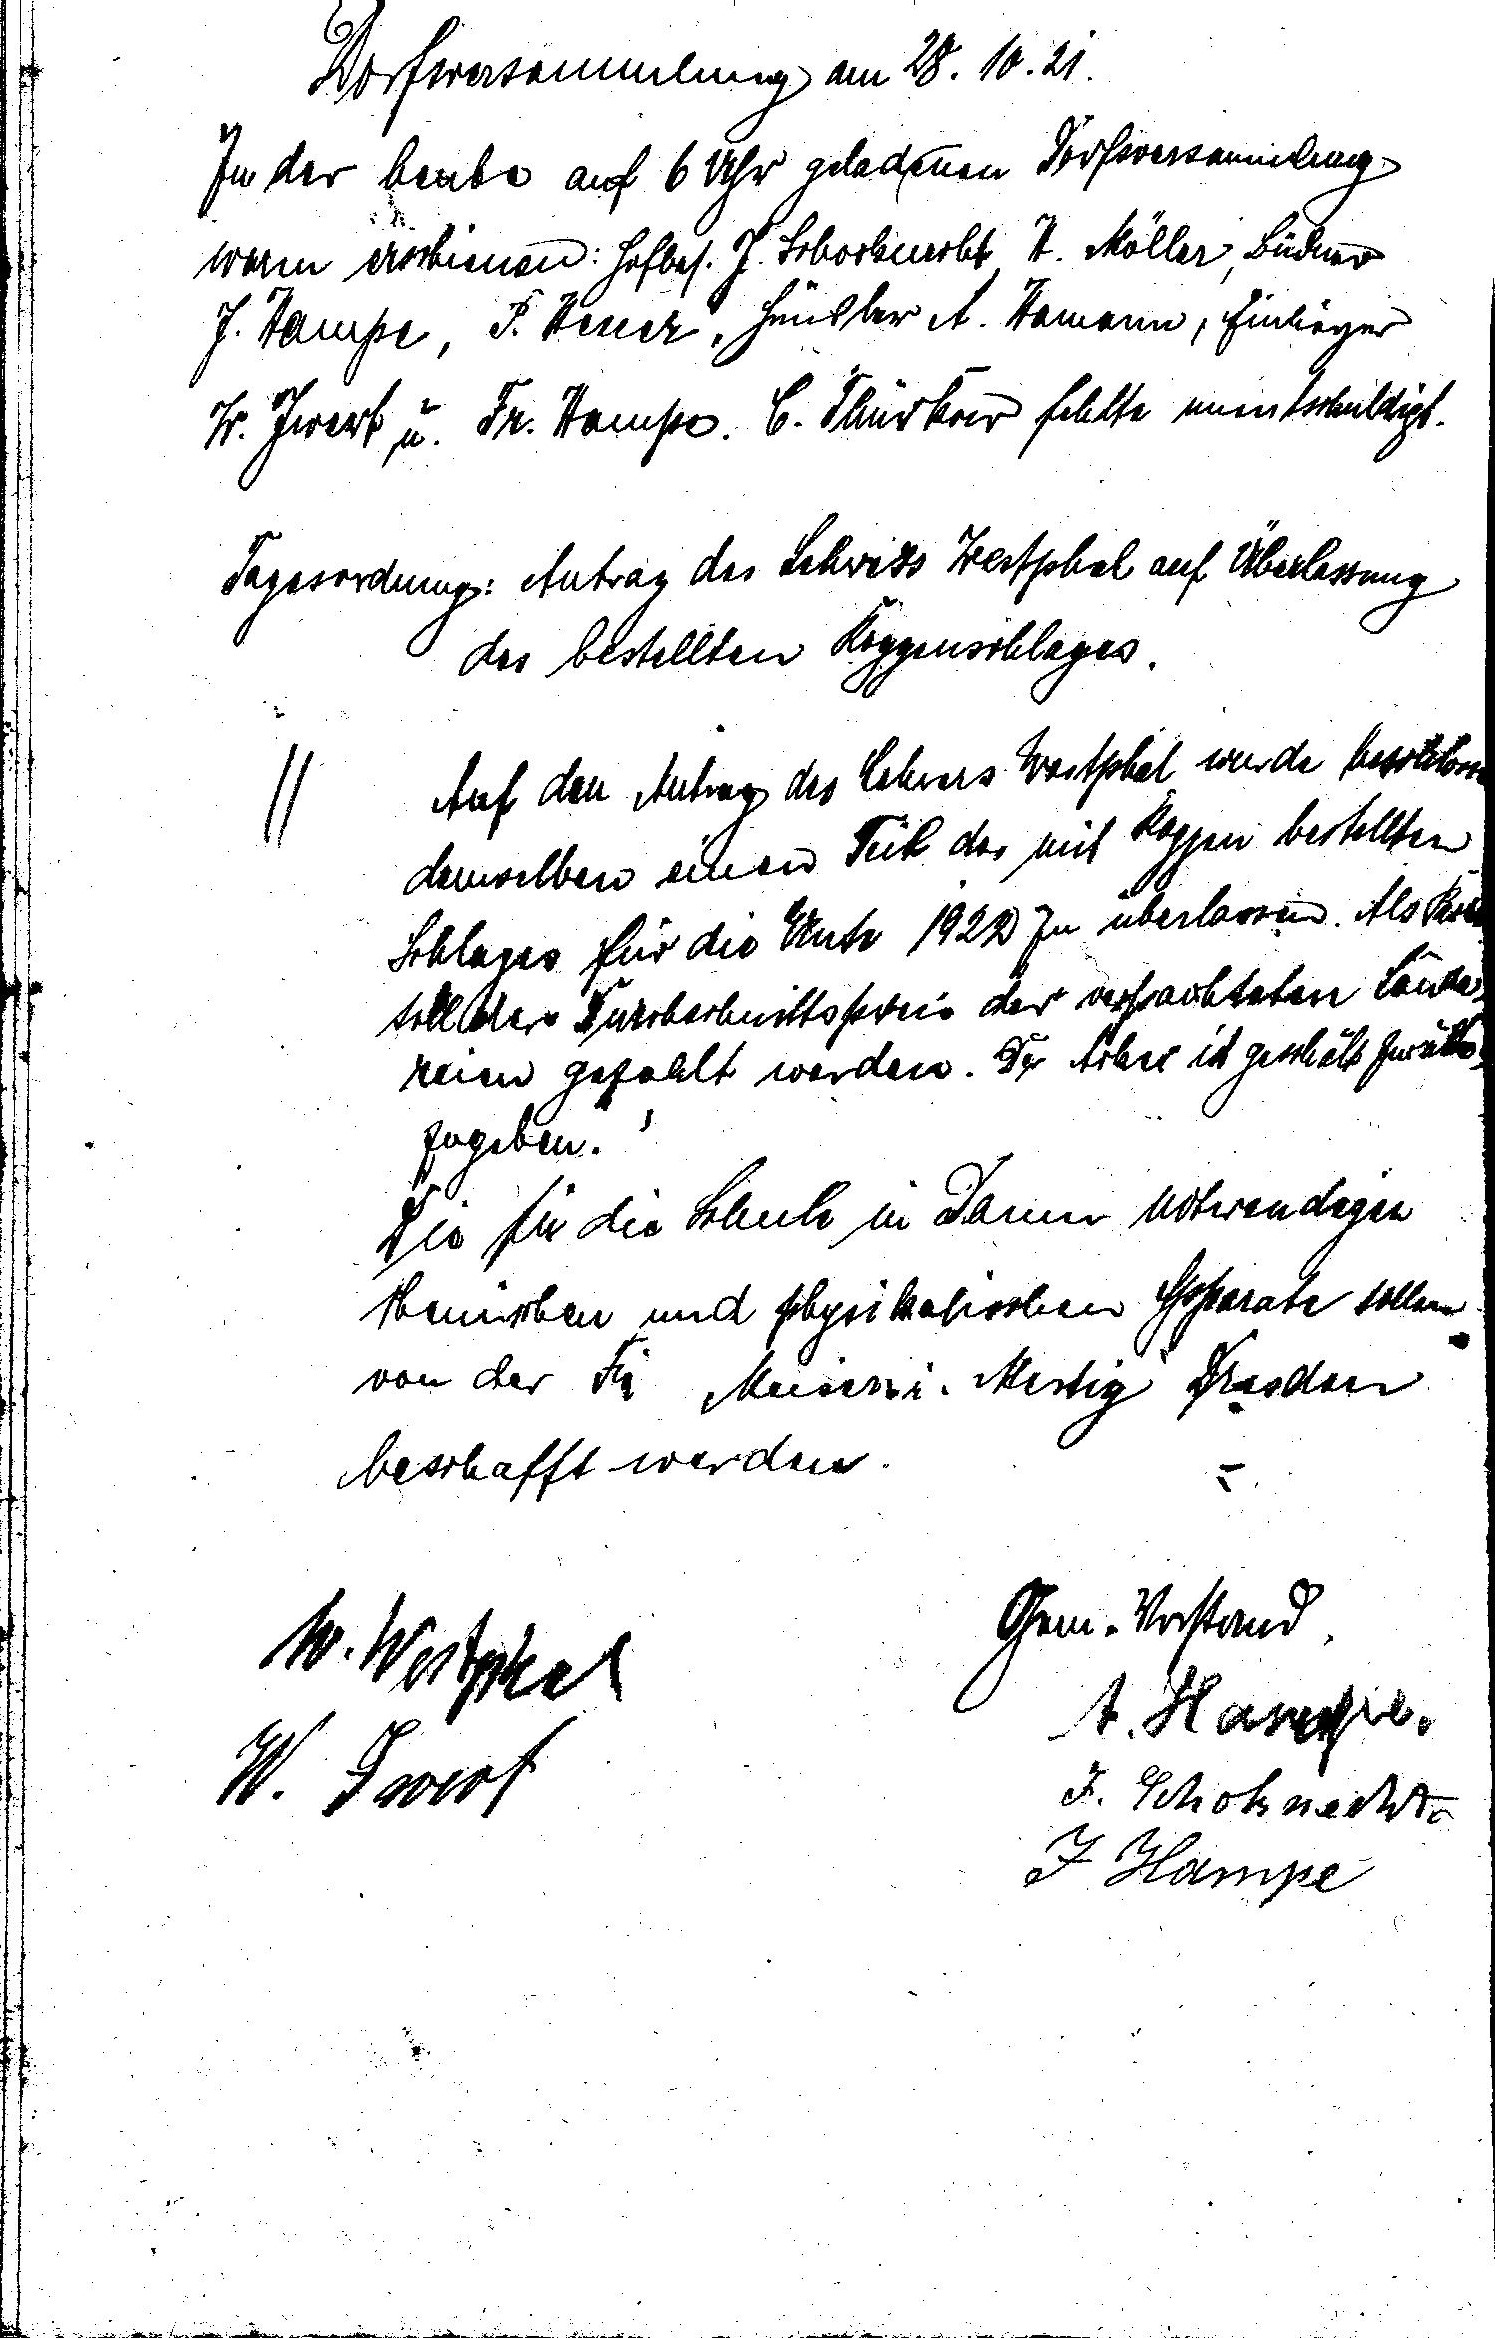 Dorfversammlung am 28. 10. 21.
In der heute auf 6 Uhr geladenen Dorfsversammlung
waren erschienen: Hofbes. J. Schoknecht, H. Möller, Büdner
J. Hampe, P. Hener, Häusler A. Hamann, Einlieger
W. Iwert u. Fr. Hampe. C. Thürkow fehlte unentschuldigt.
Tagesordnung: Antrag des Lehrers Westphal auf Überlassung
des bestellten Roggenschlages.
Auf den Antrag des Lehrers Westphal wurde beschlossen
demselben einen Teil des mit Roggen bestellten
Schlages für die Ernte 1922 zu überlassen. Als Preis
soll der Durchschnittspreis der verpachteten Lände-
reien gezahlt werden. Der Acker ist geschält zurück-
zugeben.
Die für die Schule in Damm notwendigen
chemischen und physikalischen Apparate sollen
von der Fa Meiser u. Mertig Dresden
beschafft werden.
Gem. Vorstand.
W. Westphal
A. Hampe.
W. Iwert
J. Schoknecht.
J Hampe